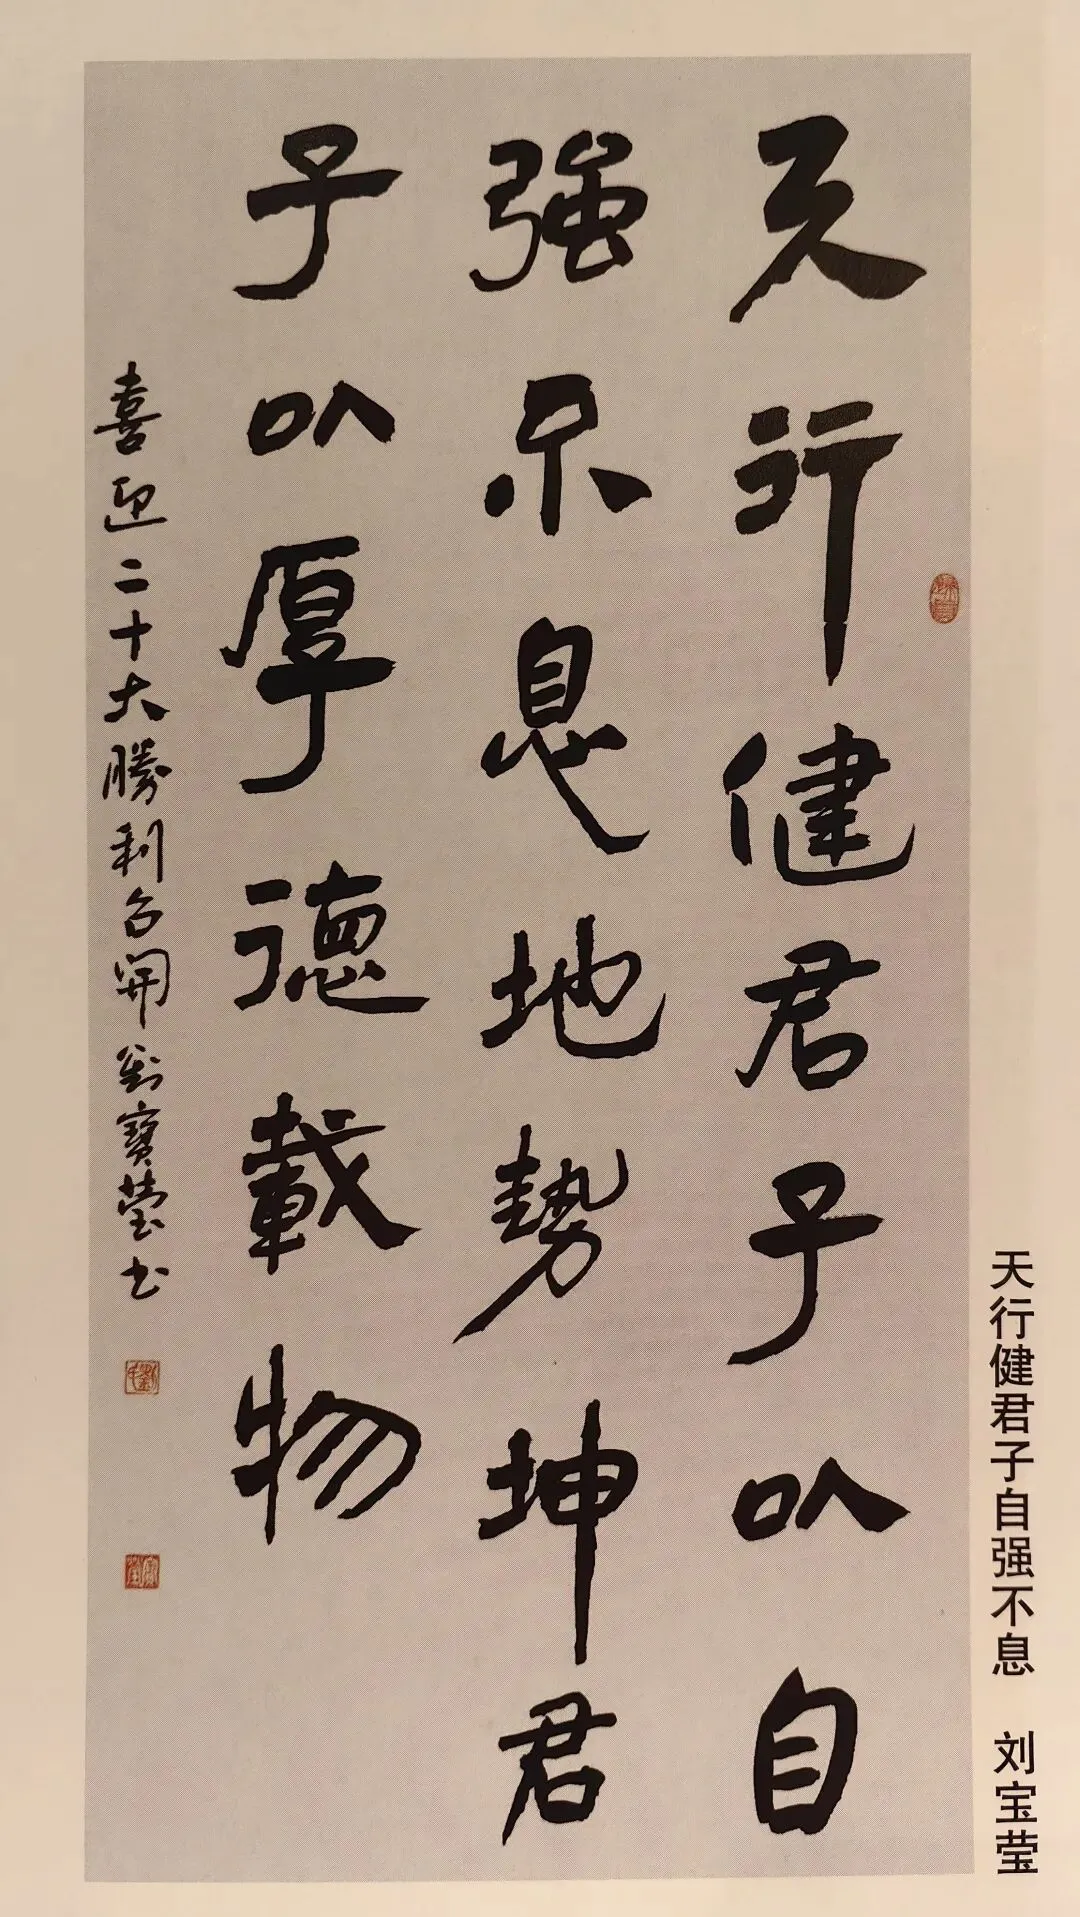 天行健君子以自
強不息地勢坤君
子以厚德載物
喜迎二十大勝利召開 劉寶瑩书
天行健君子自强不息 刘宝莹